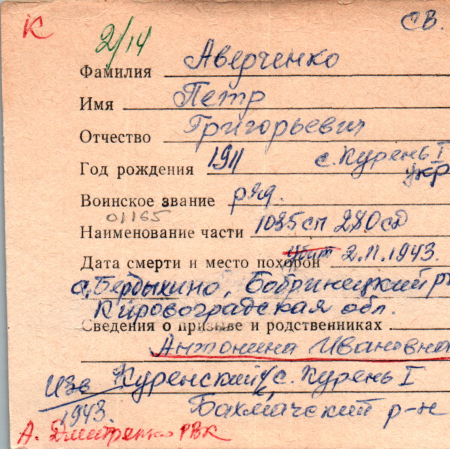 К 2/14 св.
Фамилия Аверченко
Имя Петр
Отчество Григорьевич
Год рождения 1911 с. Курень I
укр
Воинское звание ряд.
01165
Наименование части 1035 сп 280 сд
Дата смерти и место похорон убит 2.11.1943.
с. Бердыхино, Бобринецкий р
Кировоградская обл.
Сведения о призыве и родственниках
Антонина Ивановна
Изв Куренский с. Курень I
1943. Бахмачский р-н
А. Дмитренко РВК